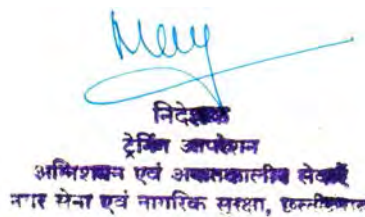 निदेशक
ट्रेनिंग आपरेशन
अग्निशमन एवं आपातकालीन सेवायें
नगर सेना एवं नागरिक सुरक्षा, छत्तीसगढ़